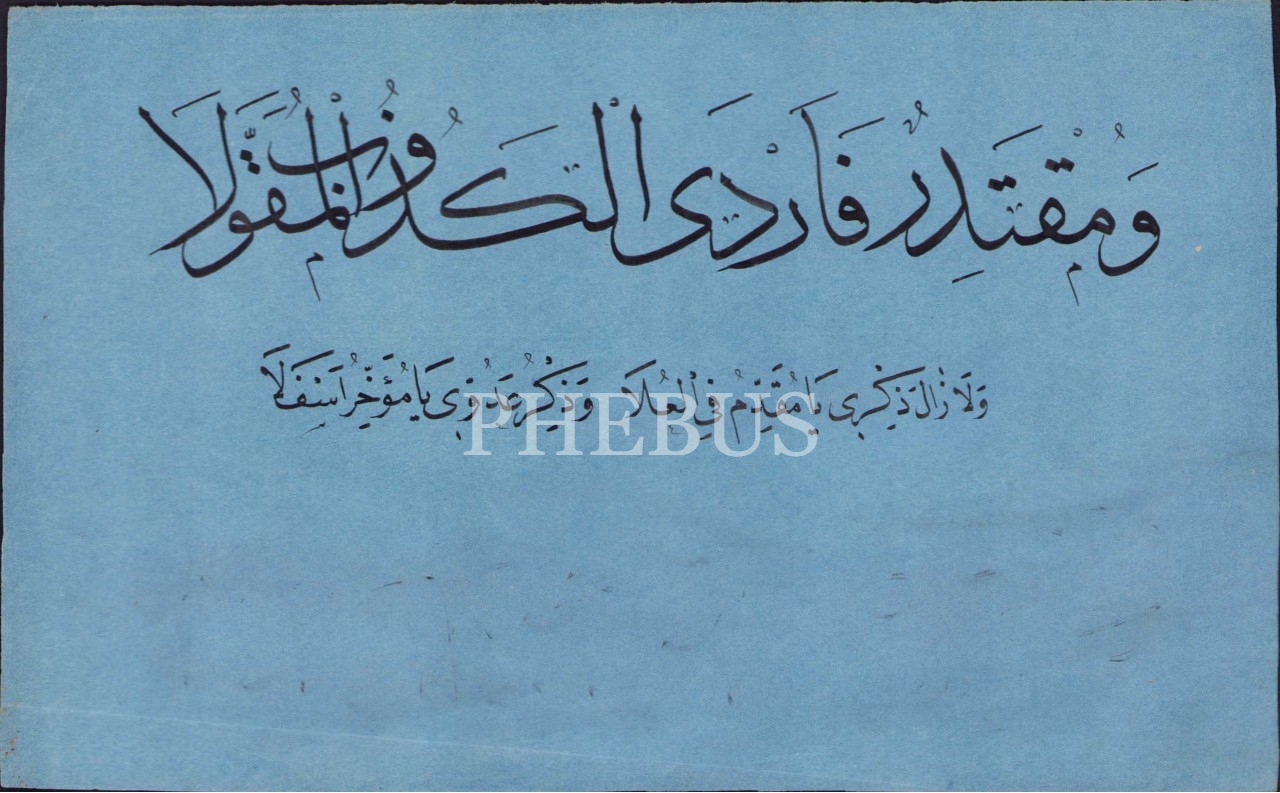 وَمُقْتَدِرٌ فَاَرْدَى الْكَذُوبُ الْمُقَوَّلَا
وَلَا زَالَ ذِكْرِى يَا مُقَدِّمُ فِى الْعُلَا وَذِكْرُ عَدُوِّى يَا مُؤَخِّرُ اَسْفَلَا
PHEBUS